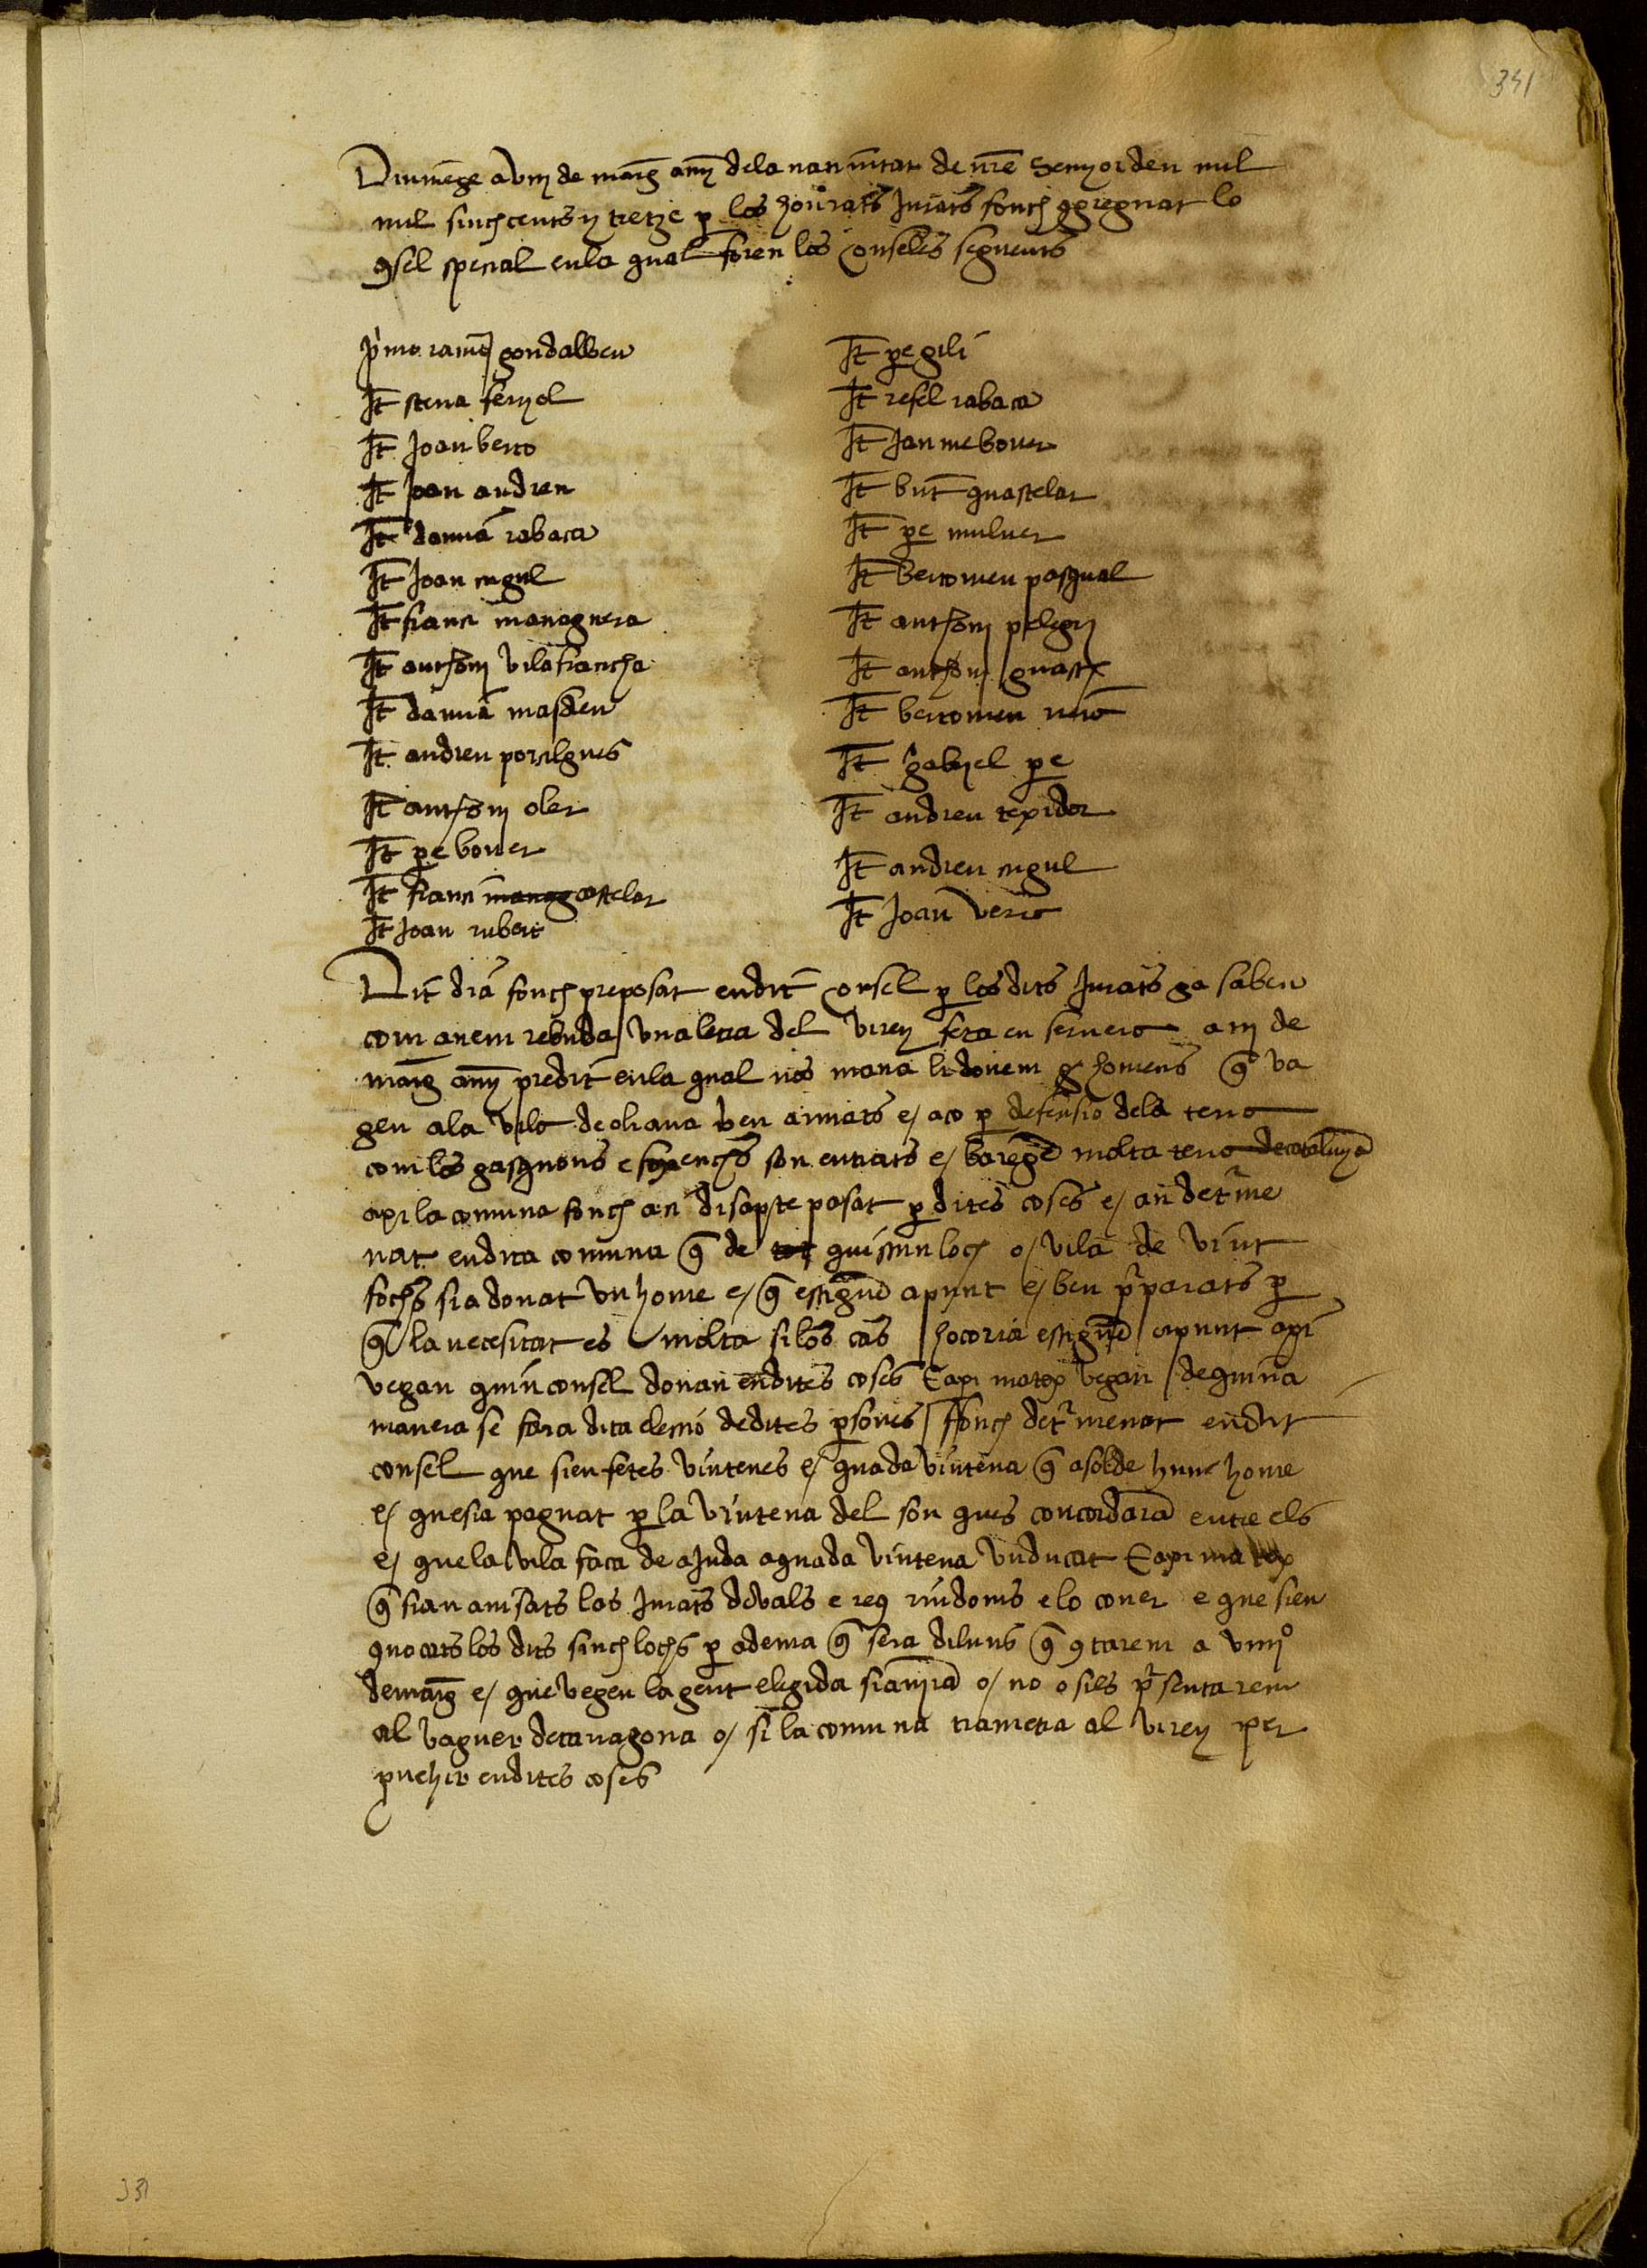 341
Diumẽge a viij de març any dela nativitat de nr̃e senyor deu mil
mil sinch cents y tretze p los honrats Jurats fonch ɔgreguat lo
ɔsel special en la qual foren los conselẽs seguents
prmo ramõ gondalbeu
It steva feryol
It Joan berto
It Joan andreu
It damiã rabaca
It Joan cugul
It franci managuera
It anthoni vilafrancha
It damiã masdeu
It andreu porcilgues
It anthoni oler
It pe bover
It franci manag castelar
It Joan rubert
It pe gili
It refel rabaca
It Jaume bover
It bnt guastelar
It pe muluer
It bertomeu pasqual
It anthoni pelegri
It anthoni guasch
It bertomeu
It gabriel pe
It andreu texidor
It andreu cugul
It Joan
Dit dia fonch preposat en dit consel p los dits Jurats ja sabeu
com avem rebuda una letra del virey feta en servera a iij de
març any predit en la qual nos mana li donem homens q̃ va
gen ala vila de oliana ben armats e/ aço p defensio dela terra
com los gasquons e son entrats e/ molta terra de catalunya
axi la comuna fonch aci disapte pasat p dites coses e/ an detrme
nat en dita comuna q̃ de tot quiscun loch o/ vila de vint
fochs sia donat un home e/ q̃ estiguẽ apunt e/ ben prparats p
q̃ la necesitat es molta si los cas hocoria estiguẽ apunt axi
vegan quin consel donan en dites coses E axi matex vegan de quina
manera se fara dita elecio de dites psones ffonch detrmenat en dit
consel que sien fetes vintenes e/ quada vintena q̃ asolde hun home
e/ que sia paguat p la vintena del sou ques concordara entre els
e/ que la vila faça de ajuda a quada vintena un ducat E axi matex
q̃ sian avisats los Jurats e riudoms e lo coner e que sien
los dits sinch lochs p a dema q̃ sera diluns q̃ ɔtarem a viiijº
de març e/ que vegen la gent elegida si anirã o/ no o sils prsentarem
al vaguer de taragona o/ si la comuna trametra al virey per
pvehir en dites coses
331